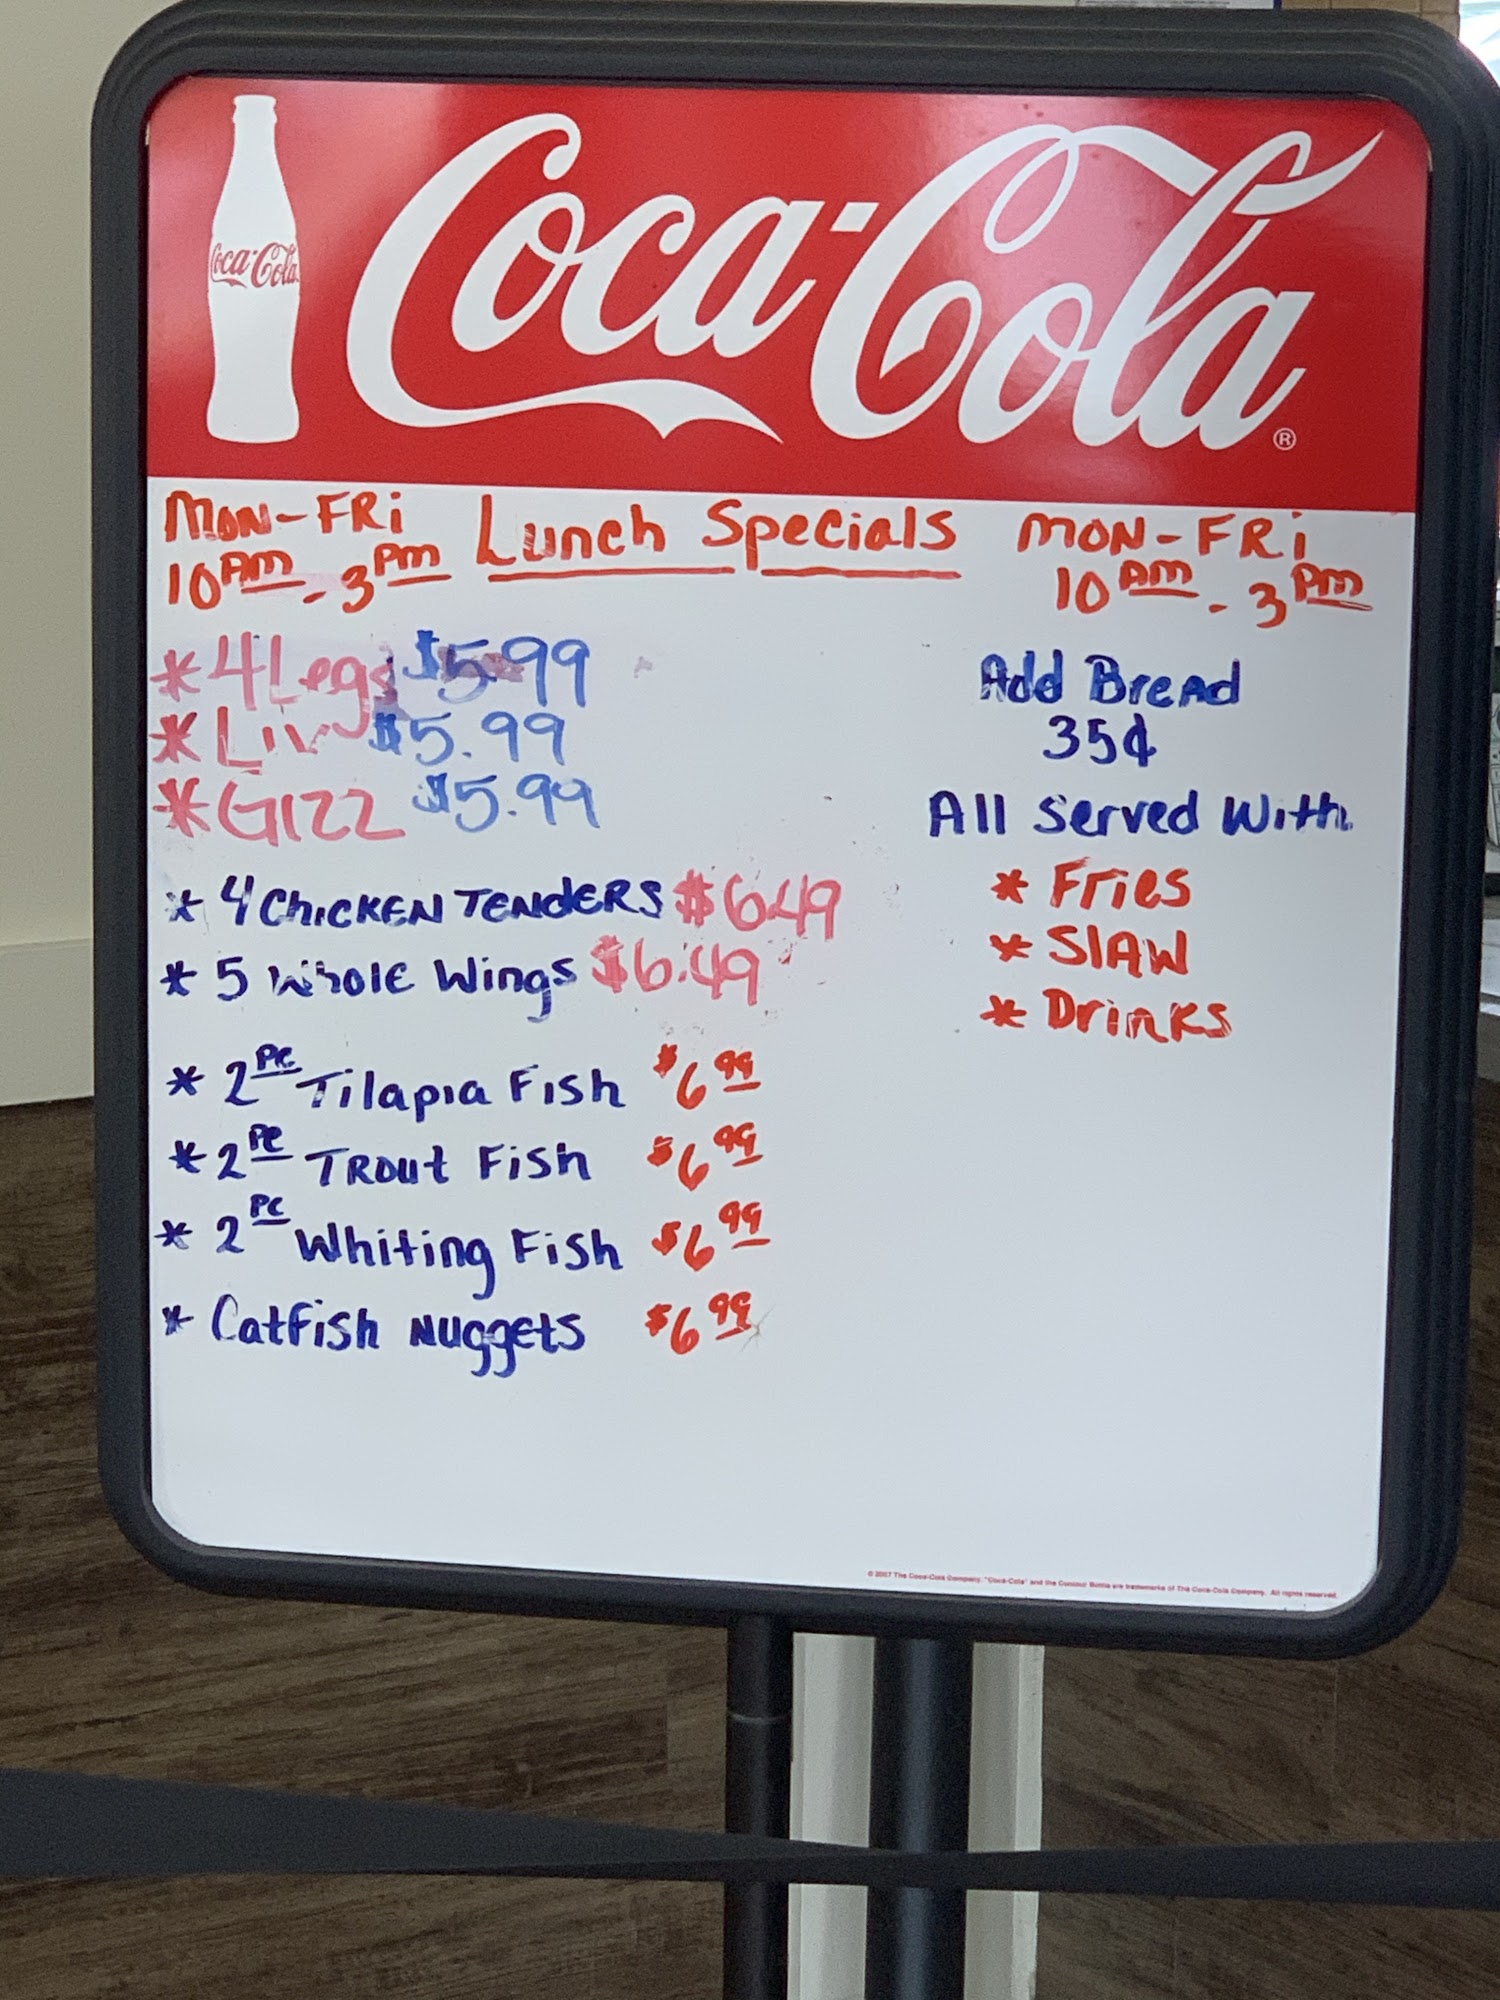 Coca-Cola
Coca-Cola ®
MON-FRi Lunch Specials MON-FRi
10AM - 3PM 10AM - 3PM
* 4 Legs $5.99
* Liv $5.99
* GIZZ $5.99
* 4 CHICKEN TENDERS $6.49
* 5 Whole Wings $6.49
* 2PC Tilapia Fish $6.99
* 2PC TROUT Fish $6.99
* 2PC Whiting Fish $6.99
* Catfish Nuggets $6.99
Add Bread
35¢
All Served With
* Fries
* SlAW
* Drinks
© 2007 The Coca-Cola Company. "Coca-Cola" and the Contour Bottle are trademarks of The Coca-Cola Company. All rights reserved.